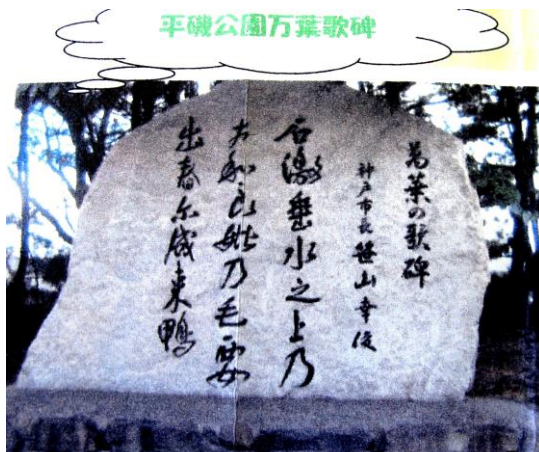 平磯公園万葉歌碑
萬葉の歌碑
神戸市長 笹山幸俊
石激垂水之上乃
左和良妣乃毛要
出春尓成来鴨